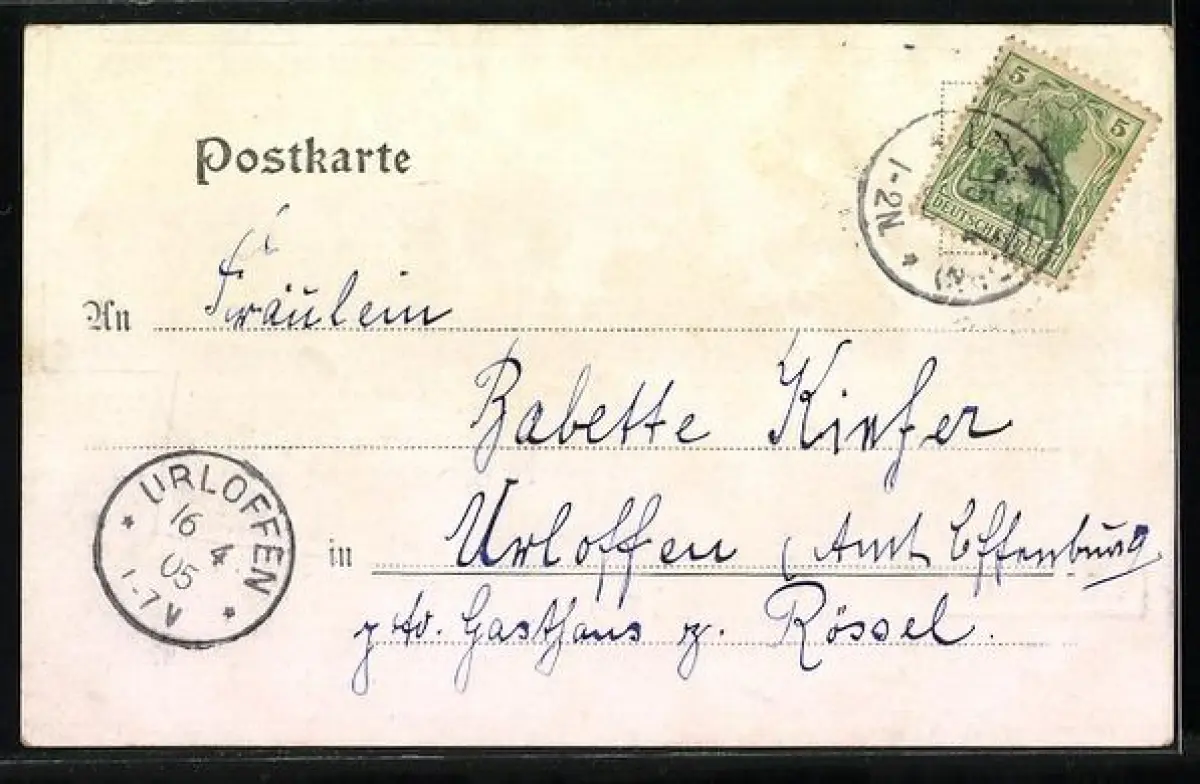 Postkarte
5 5
DEUTSCHES REICH
1-2N
An Fräulein
Babette Kiefer
URLOFFEN
16 4 05
1-7 V
in Urloffen (Amt Offenburg
Gasthaus z. Rössel.